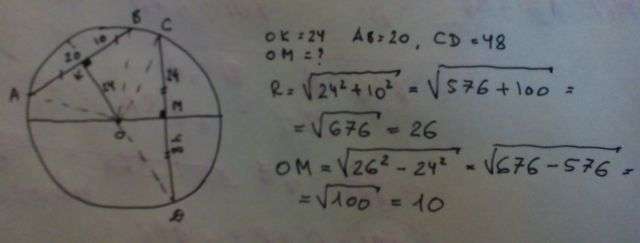 B C
20 10
K 24 24
A M
O 24
D
OK = 24 AB = 20, CD = 48
OM = ?
R = √24² + 10² = √576 + 100 =
= √676 = 26
OM = √26² - 24² = √676 - 576 =
= √100 = 10